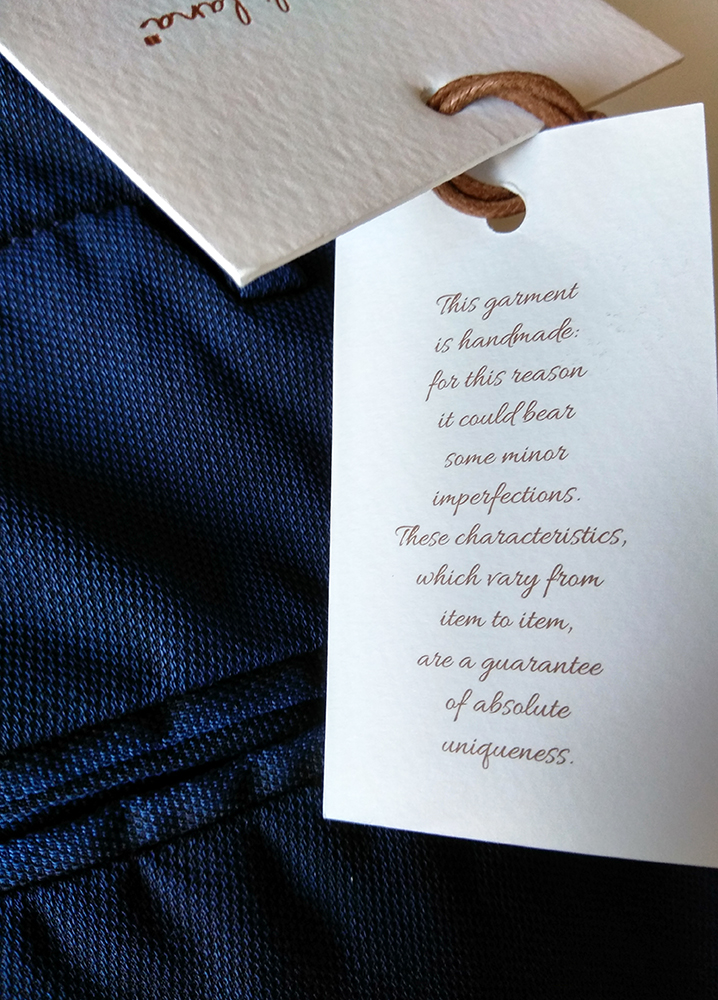 This garment
is handmade:
for this reason
it could bear
some minor
imperfections.
These characteristics,
which vary from
item to item,
are a guarantee
of absolute
uniqueness.